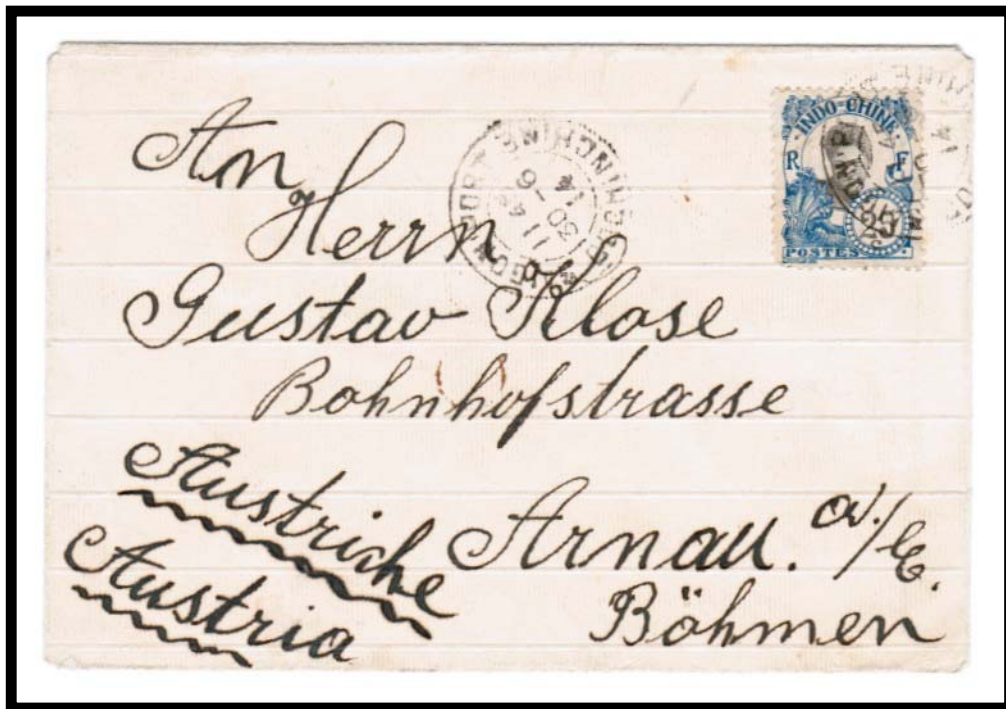 An
Herrn
Gustav Klose
Bohnhofstrasse
Arnau. a./E.
Böhmen
Austriche
Austria
INDO-CHINE
R F
25
POSTES
11
30 - 6
14